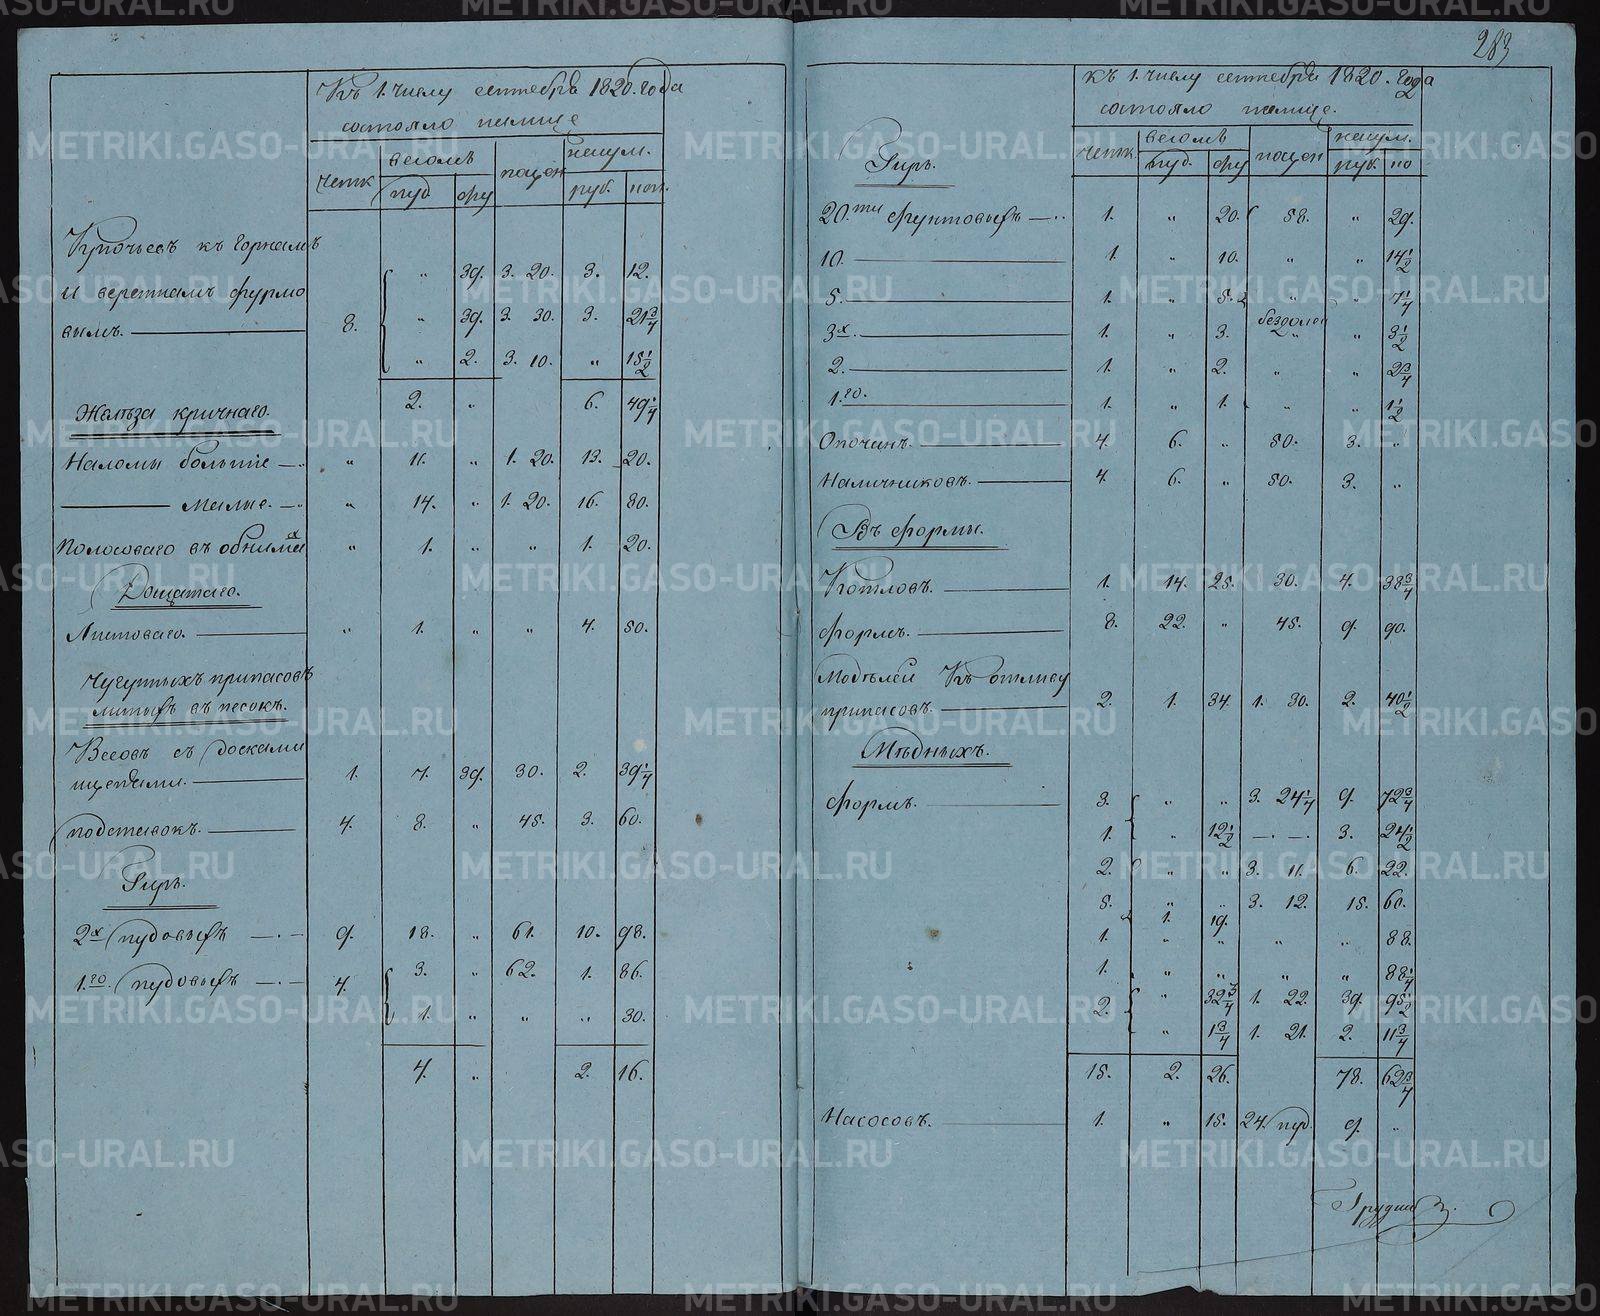 283
Къ 1. числу сентября 1820. года
состояло налице
четк
весомъ
пуд.
фу
поцен
насум.
руб.
коп.
Крючьевъ къ горнамъ
и веретнамъ фурмо
вымъ.
8.
" 39. 3. 20. 3. 12.
" 39. 3. 30. 3. 21 3/4
" 2. 3. 10. " 15 1/2
2. " 6. 49 1/4
Желѣза кричнаго.
Наломы большіе " 11. " 1. 20. 13. 20.
Малые. " 14. " 1. 20. 16. 80.
Полосоваго въ " 1. " " 1. 20.
Дощатаго.
Листоваго. " 1. " " 4. 50.
Чугунныхъ припасовъ
литыхъ въ песокъ.
Весовъ съ досками
1. 7. 39. 30. 2. 39 1/4
подставокъ. 4. 8. " 45. 3. 60.
Гирь.
2х пудовыхъ 9. 18. " 61. 10. 98.
1.го пудовыхъ 4. 3. " 62. 1. 86.
1. " " " 30.
4. " 2. 16.
къ 1. числу сентября 1820. года
состояло налице.
четк
весомъ
пуд.
фу
поцен
насум.
руб.
ко
Гирь.
20.ти фунтовыхъ 1. " 20. 58. " 29.
10. 1. " 10. " " 14 1/2
5. 1. " 5. " " 7 1/4
3х. 1. " 3. " " 3 1/2
2. 1. " 2. " " 2 3/4
1.го. 1. " 1. " " 1 1/2
Опочанъ. 4. 6. " 50. 3. "
Наличниковъ. 4. 6. " 50. 3. "
Въ формы.
Котловъ. 1. 14. 25. 30. 4. 38 3/4
формъ. 8. 22. " 45. 9. 90.
Моделей Къ отливу
припасовъ. 2. 1. 34. 1. 30. 2. 40 1/2
Мѣдныхъ.
формъ. 3. " " 3. 24 1/4 9. 72 3/4
1. " 12 1/2 3. 24 1/2
2. " " 3. 11. 6. 22.
5. " " 3. 12. 15. 60.
1. 19.
1. " " " " 88.
1. " " " " 88 1/4
2. " 32 3/4 1. 22. 39. 95 1/2
" 1 3/4 1. 21. 2. 11 3/4
15. 2. 26. 78. 62 3/4
Насосовъ. 1. " 15. 24 пуд. 9. "
METRIKI.GASO-URAL.RU